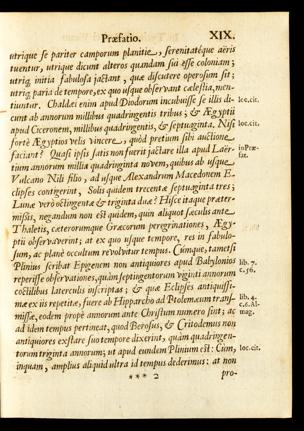 Præfatio. XIX.
utrique se pariter camporum planitie, serenitatéque aëris
tuentur, utrique dicunt alteros quandam sui esse coloniam;
utriq; initia fabulosa jactant, quæ discutere operosum sit;
utriq; paria de tempore, ex quo usque observant cælestia, men-
tiuntur. Chaldæi enim apud Diodorum incubuisse se illis di-
cunt ab annorum millibus quadringentis tribus; & Ægyptii
apud Ciceronem, millibus quadringentis, & septuaginta. Nisi
fortè Ægyptios velis vincere, quòd pretium sibi auctione
faciant? Quasi ipsis satis non fuerit jactare illa apud Laër-
tium annorum millia quadraginta novem, quibus ab usque
Vulcano Nili filio, ad usque Alexandrum Macedonem E-
clipses contigerint, Solis quidem trecentæ septuaginta tres;
Lunæ verò octingentæ & triginta duæ? Hisce itaque præter-
missis, negandum non est quidem, quin aliquot sæculis ante
Thaletis, cæterorumque Græcorum peregrinationes, Ægy-
ptii observaverint; at ex quo usque tempore, res in fabulo-
sum, ac planè occultum revolvitur tempus. Cùmque, tametsi
Plinius scribat Epigenem non antiquiores apud Babylonios
reperisse observationes, quàm septingentorum viginti annorum
coctilibus laterculis inscriptas; & quæ Eclipses antiquissi-
mæ ex iis repetitæ, fuere ab Hipparcho ad Ptolemæum trans-
missæ, eodem propè annorum ante Christum numero sint; ac
ad idem tempus pertineat, quod Berosus, & Critodemus non
antiquiores exstare suo tempore dixerint, quàm quadringen-
torum triginta annorum; ut apud eundem Plinium est: Cùm,
inquam, amplius aliquid ultra id tempus dederimus: at non
*** 2 pro-
loc. cit.
loc. cit.
in Præ-
fat.
lib. 7.
c. 56.
lib. 4.
c. 6. Al-
mag.
loc. cit.